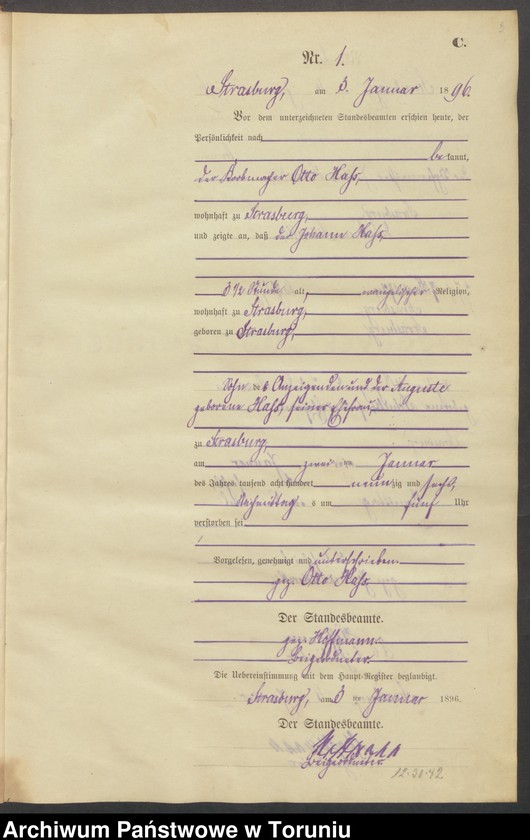 C.
Nr. 1.
Strasburg, am 3. Januar 1896.
Vor dem unterzeichneten Standesbeamten erschien heute, der
Persönlichkeit nach
bekannt,
der Korbmacher Otto Hass,
wohnhaft zu Strasburg,
und zeigte an, daß der Johann Hass,
3 1/2 Stunde alt, evangelischer Religion,
wohnhaft zu Strasburg,
geboren zu Strasburg,
Sohn des Anzeigenden und der Auguste
geborene Hass, seiner Ehefrau,
zu Strasburg,
am zweiten Januar
des Jahres tausend acht hundert neunzig und sechs,
Nachmittags um fünf Uhr
verstorben sei
Vorgelesen, genehmigt und unterschrieben
gez. Otto Hass.
Der Standesbeamte.
gez. Hoffmann
Beigeordneter.
Die Uebereinstimmung mit dem Haupt-Register beglaubigt.
Strasburg, am 3 Januar 1896.
Der Standesbeamte.
Beigeordneter.
12-30-42
Archiwum Państwowe w Toruniu